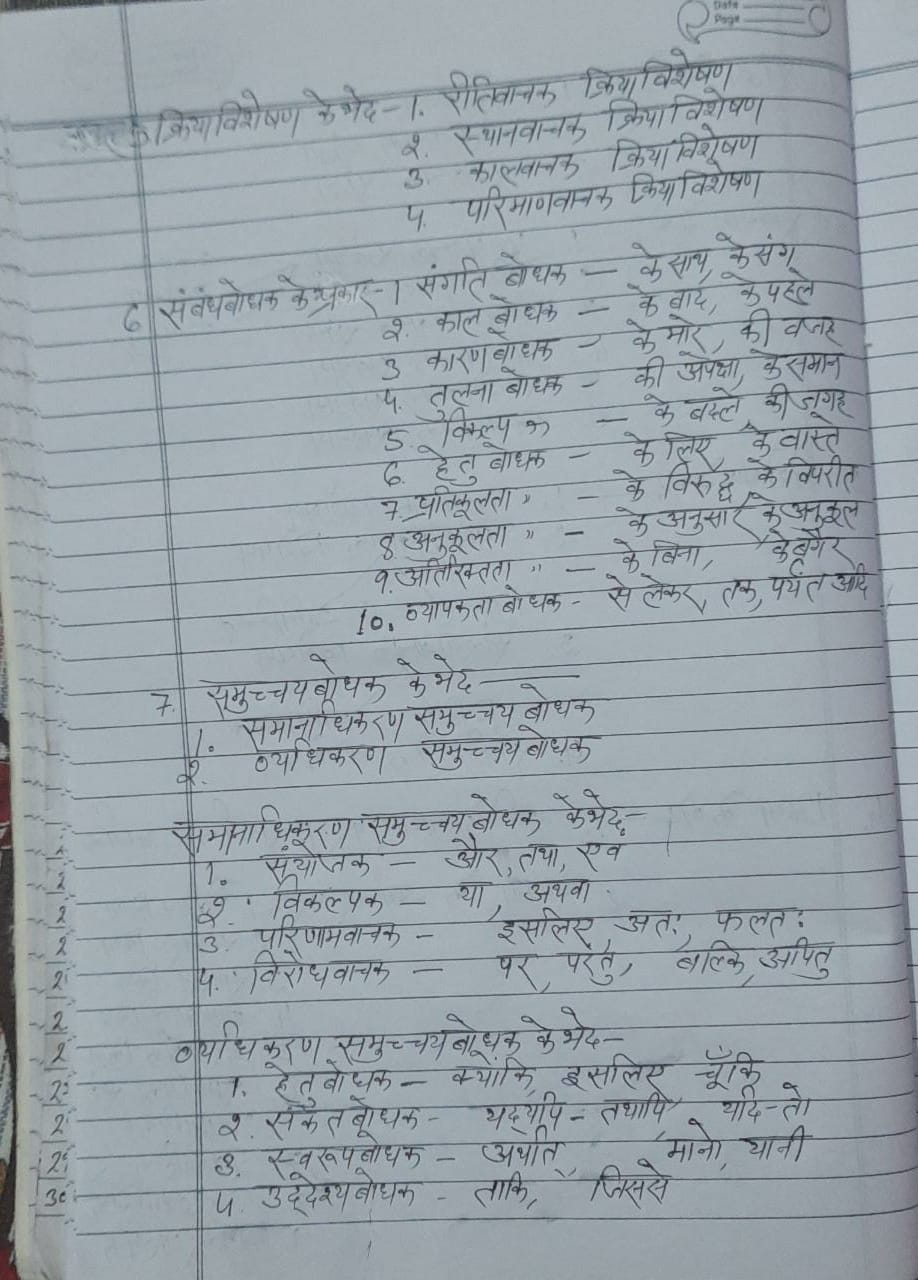 Date
Page
क्रियाविशेषण के भेद - 1. रीतिवाचक क्रियाविशेषण
२. स्थानवाचक क्रियाविशेषण
3. कालवाचक क्रियाविशेषण
4. परिमाणवाचक क्रियाविशेषण
6 संबंधबोधक के प्रकार - 1 संगति बोधक - के साथ, के संग
२. काल बोधक - के बाद, के पहले
3 कारण बोधक - के मारे, की वजह
4. तुलना बोधक - की अपेक्षा, के समान
5. विकल्प " - के बदले, की जगह
6. हेतु बोधक - के लिए, के वास्ते
7. प्रतिकूलता " - के विरुद्ध, के विपरीत
8. अनुकूलता " - के अनुसार, के अनुकूल
9. अतिरिक्तता " - के बिना, के बगैर
10. व्यापकता बोधक - से लेकर, तक, पर्यंत आदि
7. समुच्चयबोधक के भेद -
1. समानाधिकरण समुच्चय बोधक
२. व्यधिकरण समुच्चयबोधक
समानाधिकरण समुच्चय बोधक के भेद -
1. संयोजक - और, तथा, एव
२. विकल्पक - या, अथवा
3. परिणामवाचक - इसलिए, अतः, फलतः
4. विरोधवाचक - पर, परंतु, बल्कि, अपितु
व्यधिकरण समुच्चयबोधक के भेद -
1. हेतुबोधक - क्योंकि, इसलिए चूँकि
२. संकेतबोधक - यद्यपि - तथापि, यदि - तो
3. स्वरूपबोधक - अर्थात, मानो, यानी
4. उद्देश्यबोधक - ताकि, जिससे